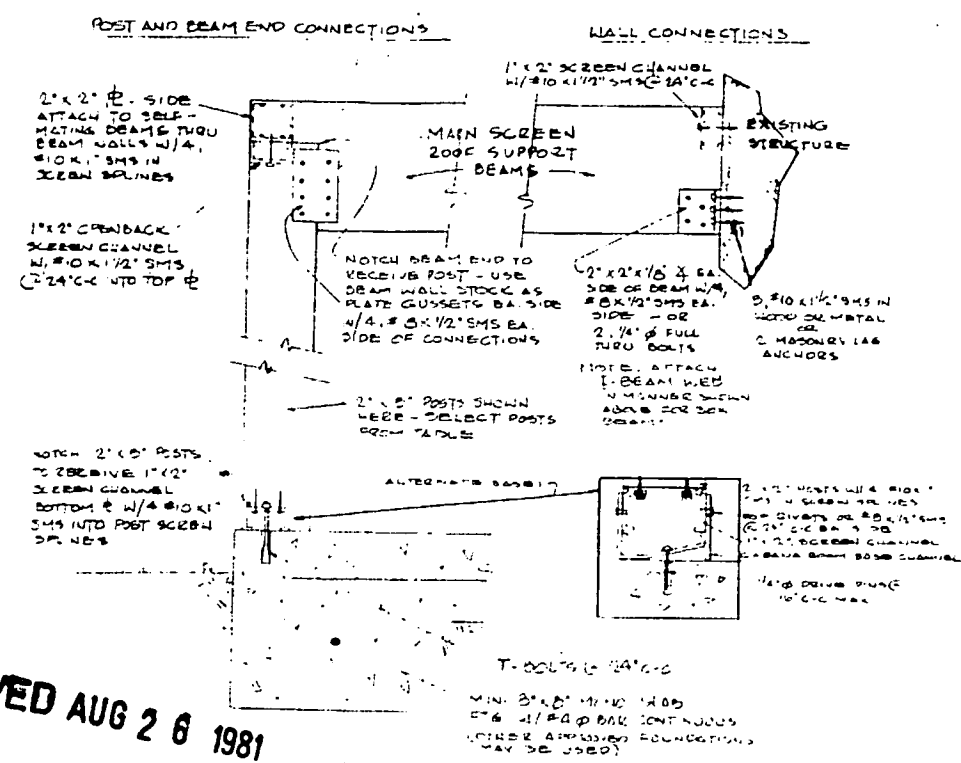 POST AND BEAM END CONNECTIONS
WALL CONNECTIONS
1" x 2" SCREEN CHANNEL
W/ #10 x 1 1/2" SMS @ 24" C-C
2" x 2" ℄ - SIDE
ATTACH TO SELF-
MATING BEAMS THRU
BEAM WALLS W/4,
#10 x 1" SMS IN
SCREEN SPLINES
MAIN SCREEN
ROOF SUPPORT
BEAMS
EXISTING
STRUCTURE
1" x 2" OPENBACK
SCREEN CHANNEL
W/ #10 x 1 1/2" SMS
@ 24" C-C INTO TOP ℄
NOTCH BEAM END TO
RECEIVE POST - USE
BEAM WALL STOCK AS
PLATE GUSSETS EA. SIDE
W/4, #8 x 1/2" SMS EA.
SIDE OF CONNECTIONS
2" x 2" x 1/8" ∠ EA.
SIDE OF BEAM W/4,
#8 x 1/2" SMS EA.
SIDE - OR
2, 1/4" ϕ FULL
THRU BOLTS
3, #10 x 1 1/2" SMS IN
WOOD OR METAL
OR
2 MASONRY LAG
ANCHORS
NOTE: ATTACH
I-BEAM WEB
IN MANNER SHOWN
ABOVE FOR BOX
BEAM
2" x 3" POSTS SHOWN
HERE - SELECT POSTS
FROM TABLE
NOTCH 2" x 3" POSTS
TO RECEIVE 1" x 2"
SCREEN CHANNEL
BOTTOM ℄ W/4 #10 x 1"
SMS INTO POST SCREEN
SPLINES
ALTERNATE BASE
2" x 2" POSTS W/4 #10 x 1"
SMS IN SCREEN SPLINES
POP RIVETS OR #8 x 1/2" SMS
C-C EA. SIDE
1" x 2" SCREEN CHANNEL
CABANA BEAM BASE CHANNEL
1/4" ϕ DRIVE PINS @
16" C-C MAX
T-BOLTS @ 24" C-C
MIN. 8" x 8" MONO SLAB
FTG W/ #4 ϕ BAR CONTINUOUS
(OTHER APPROVED FOUNDATIONS
MAY BE USED)
VED AUG 26 1981